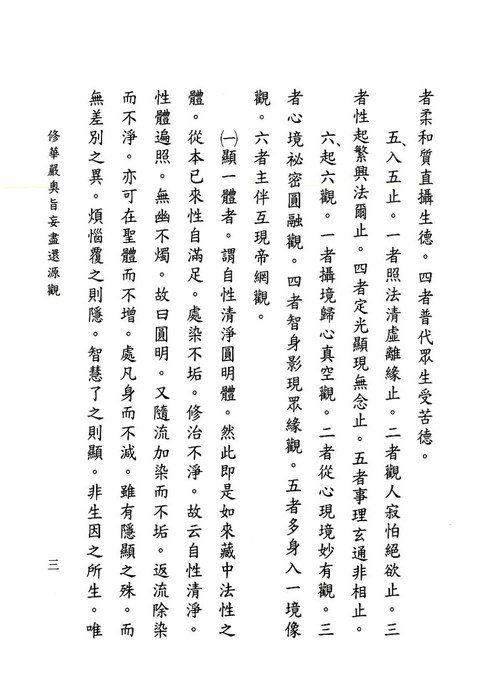 者柔和質直攝生德。四者普代眾生受苦德。
五、入五止。一者照法清虛離緣止。二者觀人寂怕絕欲止。三
者性起繁興法爾止。四者定光顯現無念止。五者事理玄通非相止。
六、起六觀。一者攝境歸心真空觀。二者從心現境妙有觀。三
者心境祕密圓融觀。四者智身影現眾緣觀。五者多身入一境像
觀。六者主伴互現帝網觀。
㈠顯一體者。謂自性清淨圓明體。然此即是如來藏中法性之
體。從本已來性自滿足。處染不垢。修治不淨。故云自性清淨。
性體遍照。無幽不燭。故曰圓明。又隨流加染而不垢。返流除染
而不淨。亦可在聖體而不增。處凡身而不減。雖有隱顯之殊。而
無差別之異。煩惱覆之則隱。智慧了之則顯。非生因之所生。唯
修華嚴奧旨妄盡還源觀
三